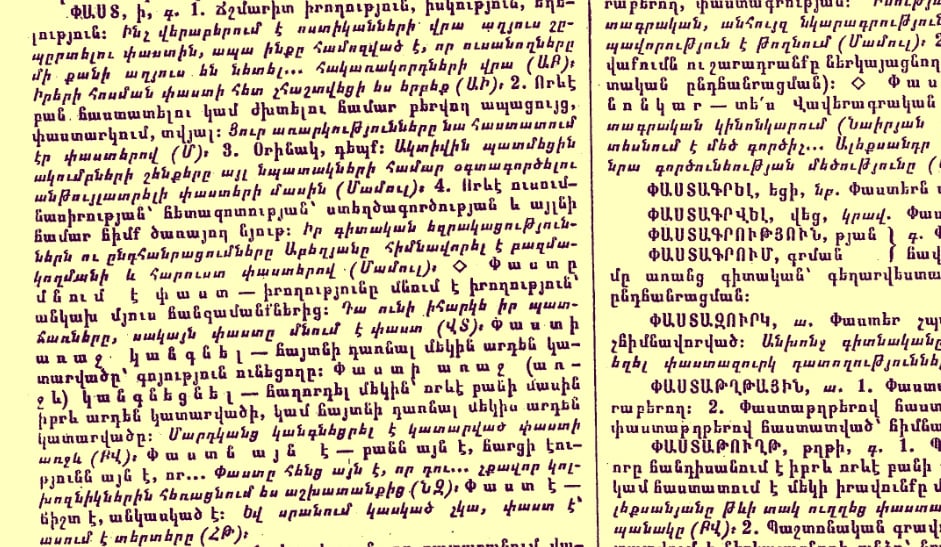 ՓԱՍՏ, ի, գ. 1. Ճշմարիտ իրողություն, իսկություն, եղե-
լություն։ Ինչ վերաբերում է ոստիկանների վրա աղյուս շը-
պըրտելու փաստին, ապա ինքը համոզված է, որ ուսանողները
մի քանի աղյուս են նետել... հակառակորդների վրա (ԱԲ)։
Իրերի հոսման փաստի հետ չհաշտվեցի ես երբեք (ԱԻ)։ 2. Որևէ
բան հաստատելու կամ ժխտելու համար բերվող ապացույց,
փաստարկում, տվյալ։ Յուր առարկությունները նա հաստատում
էր փաստերով (Մ)։ 3. Օրինակ, դեպք։ Ակտիվին պատմեցին
ակումբների շենքերը այլ նպատակների համար օգտագործելու
անթույլատրելի փաստերի մասին (Մամուլ)։ 4. Որևէ ուսում-
նասիրության՝ հետազոտության՝ ստեղծագործության և այլնի
համար հիմք ծառայող նյութ։ Իր գիտական եզրակացություն-
ներն ու ընդհանրացումները Աբեղյանը հիմնավորել է բազմա-
կողմանի և հարուստ փաստերով (Մամուլ)։ ◇ Փաստը
մնում է փաստ — իրողությունը մնում է իրողություն՝
անկախ մյուս հանգամանքներից։ Դա ունի իհարկե իր պատ-
ճառները, սակայն փաստը մնում է փաստ (ՎՏ)։ Փաստի
առաջ կանգնել — հայտնի դառնալ մեկին արդեն կա-
տարվածը՝ գոյություն ունեցողը։ Փաստի առաջ (առ-
ջև) կանգնեցնել — հաղորդել մեկին՝ որևէ բանի մասին
իբրև արդեն կատարվածի, կամ հայտնի դառնալ մեկիս արդեն
կատարվածը։ Մարդկանց կանգնեցրել է կատարված փաստի
առջև (ԲՎ)։ Փաստն այն է — բանն այն է, հարցի էու-
թյունն այն է, որ... Փաստը հենց այն է, որ դու... չքավոր կոլ-
խոզնիկներին հեռացնում ես աշխատանքից (ՆԶ)։ Փաստ է —
ճիշտ է, անկասկած է։ Եվ սրանում կասկած չկա, փաստ է՝
ասում է տերտերը (ՀԹ)։
րաբերող, փաստագրության։
տագրական, անհույզ նկարագրություն
պավորություն է թողնում (Մամուլ)։ 2
վաֆումն ու շարադրանքը ներկայացնող
տական ընդհանրացման)։ ◇ Փաս
նոնկար — տե՛ս Վավերագրական
տագրական կինոնկարում (Նաիրյան
տեսնում է մեծ գործիչ... Ալեքսանդր
նրա գործունեության մեծությունը (
ՓԱՍՏԱԳՐԵԼ, եցի, նբ. Փաստերն
ՓԱՍՏԱԳՐՎԵԼ, վեց, կրավ. Փաս
ՓԱՍՏԱԳՐՈՒԹՅՈՒՆ, թյան } գ. Փ
ՓԱՍՏԱԳՐՈՒՄ, գրման } հավ
մը առանց գիտական՝ գեղարվեստա
ընդհանրացման։
ՓԱՍՏԱԶՈՒՐԿ, ա. Փաստեր չպ
չհիմնավորված։ Անխոնջ գիտնականը
եղել փաստազուրկ դատողություննե
ՓԱՍՏԱԹՂԹԱՅԻՆ, ա. 1. Փաստ
րաբերող։ 2. Փաստաթղթերով հաստ
փաստաթղթերով հաստատված՝ հիմնա
ՓԱՍՏԱԹՈՒՂԹ, թղթի, գ. 1. Պ
որը հանդիսանում է իբրև որևէ բանի
կամ հաստատում է մեկի իրավունքը մ
լեքսանյանը թևի տակ ուղղեց փաստա
պանակը (ԲՎ)։ 2. Պաշտոնական գրավ